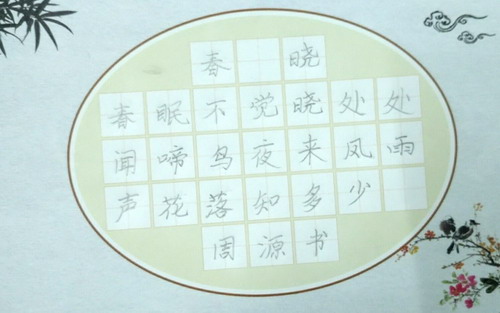 春 晓
春眠不觉晓处处
闻啼鸟夜来风雨
声花落知多少
周源书